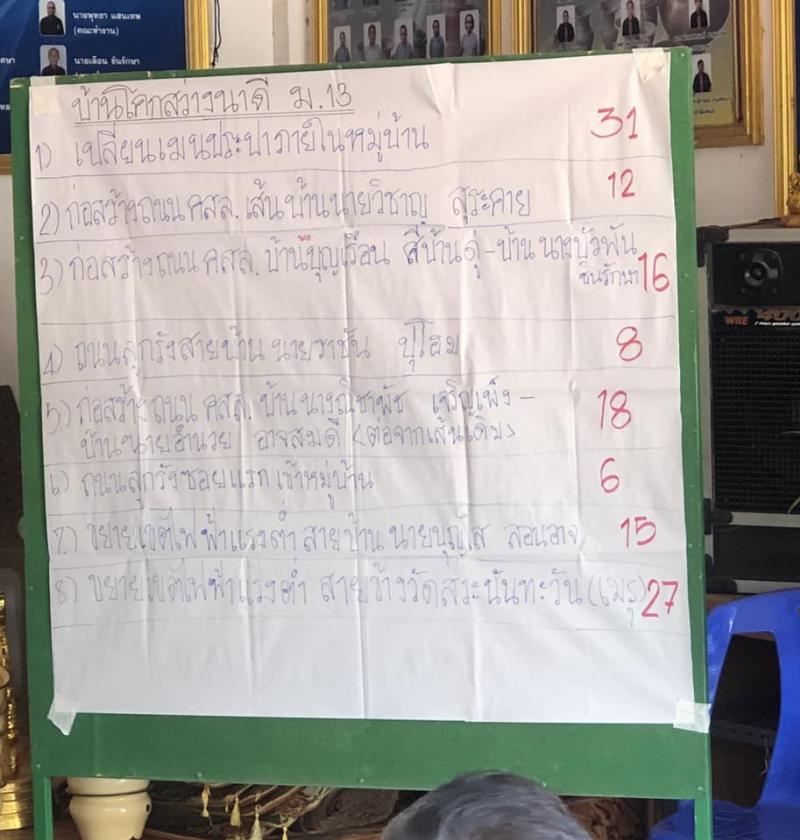 นายพุทธา แสนเทพ
(คณะทำงาน)
นายเดือน ชินรักษา
บ้านโคกสว่างนาดี ม.13
1) เปลี่ยนเมนประปาภายในหมู่บ้าน 31
2) ก่อสร้างถนน คสล. เส้นบ้านนายวิชาญ สุระคาย 12
3) ก่อสร้างถนน คสล. บ้านบุญเรือน สีบ้านดู่ - บ้านนางบัวพัน
ชินรักษา 16
4) ถนนลูกรังสายบ้าน นายราชัน ปุโฮม 8
5) ก่อสร้างถนน คสล. บ้านนางณิชาพัช เจริญเพ็ง -
บ้านนายอำนวย อาจสมดี (ต่อจากเส้นเดิม) 18
6) ถนนลูกรังซอยแรกเข้าหมู่บ้าน 6
7) ขยายเขตไฟฟ้าแรงต่ำ สายบ้าน นายบุญใส สอนอาจ 15
8) ขยายเขตไฟฟ้าแรงต่ำ สายข้างวัดสระนันทะวัน (เมรุ) 27
WRE 400